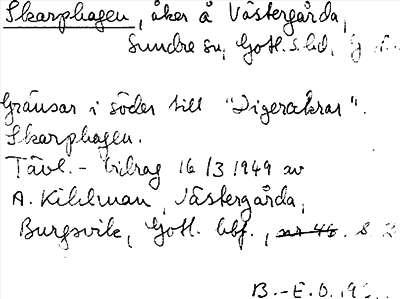 Skarphagen, åker å Västergårda,
Sundre sn, Gotl. s.hd, G
Gränsar i söder till "Digerakrar".
Skarphagen.
Tävl.-bidrag 16/3 1949 av
A. Kihlman, Västergårda,
Burgsvik, Gotl. bbf., s.
B.-E.O. 19